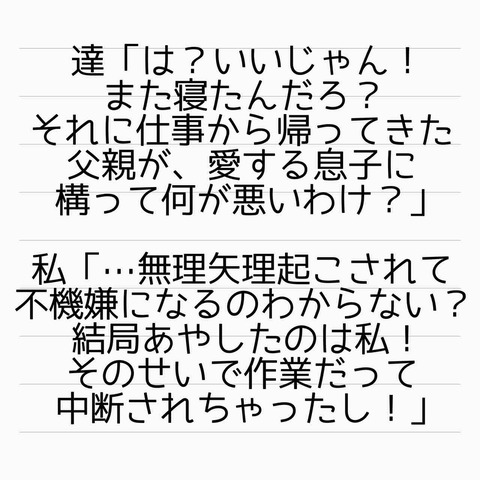 達「は？いいじゃん！
また寝たんだろ？
それに仕事から帰ってきた
父親が、愛する息子に
構って何が悪いわけ？」
私「…無理矢理起こされて
不機嫌になるのわからない？
結局あやしたのは私！
そのせいで作業だって
中断されちゃったし！」